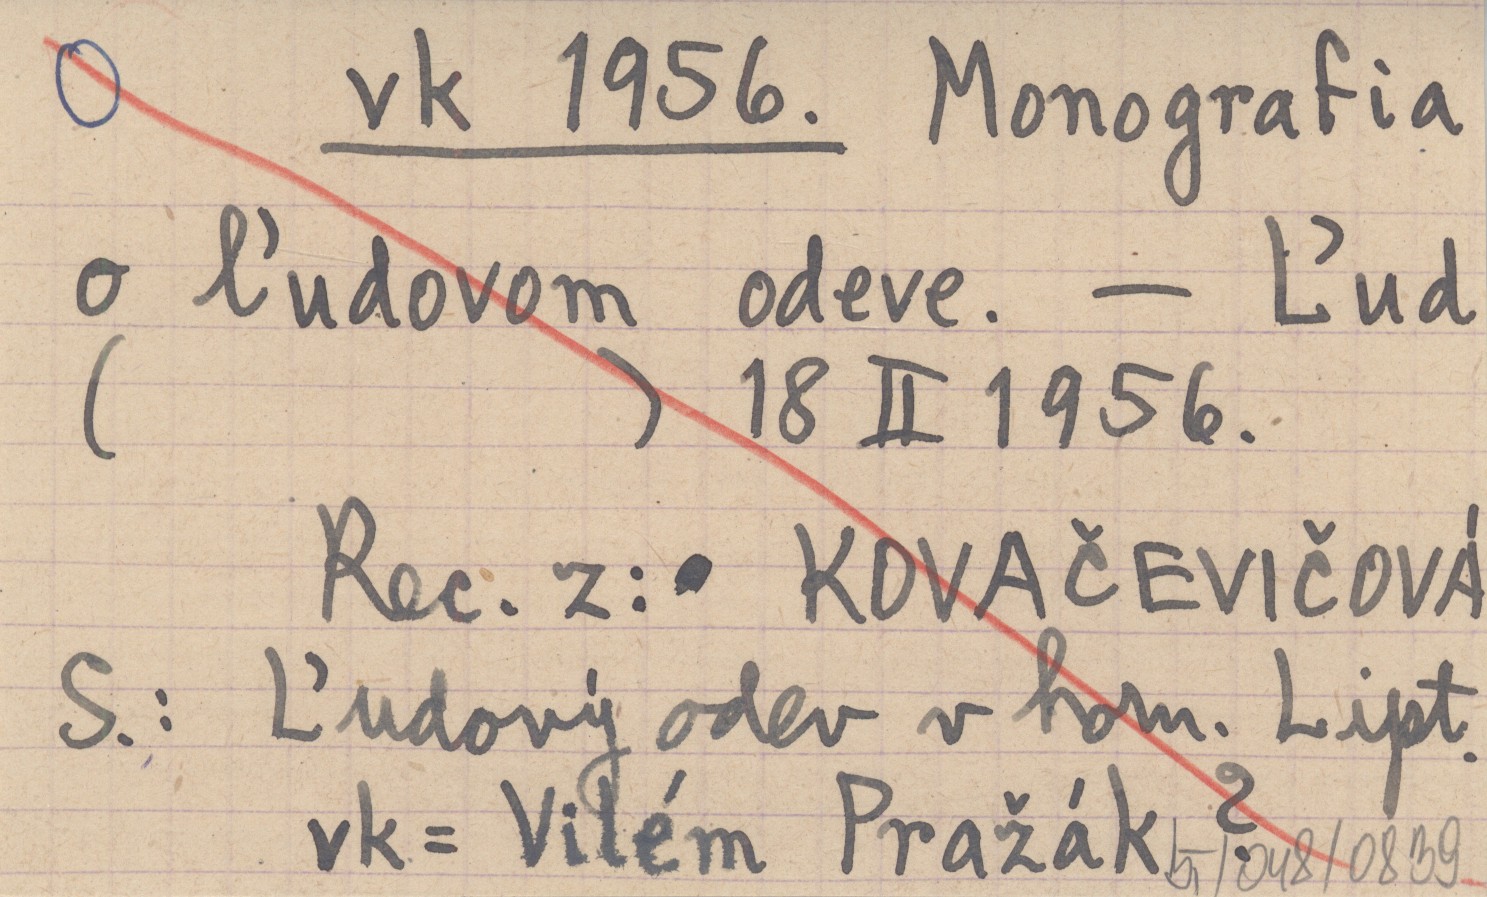 vk 1956. Monografia
o ľudovom odeve. — Ľud
( ) 18 II 1956.
Rec. z: • KOVAČEVIČOVÁ
S.: Ľudový odev v horn. Lipt.
vk = Vilém Pražák?
5/048/0839